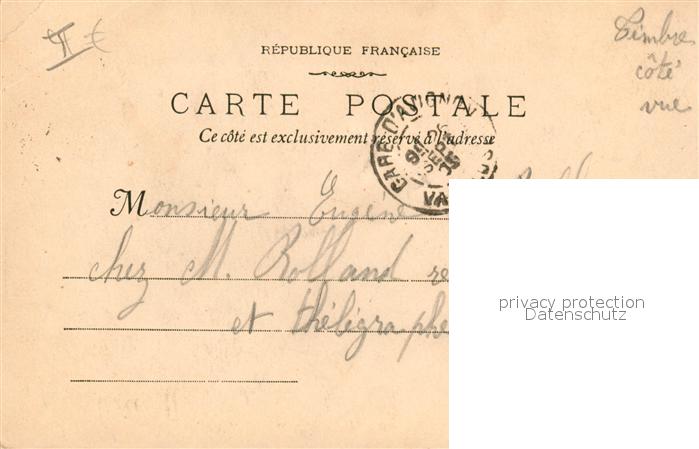 Timbre
côté
vue
RÉPUBLIQUE FRANÇAISE
CARTE POSTALE
Ce côté est exclusivement réservé à l'adresse
GARE D'AVIGNON
VA
Monsieur Eugène
chez M. Rolland
et théligraphe
privacy protection
Datenschutz